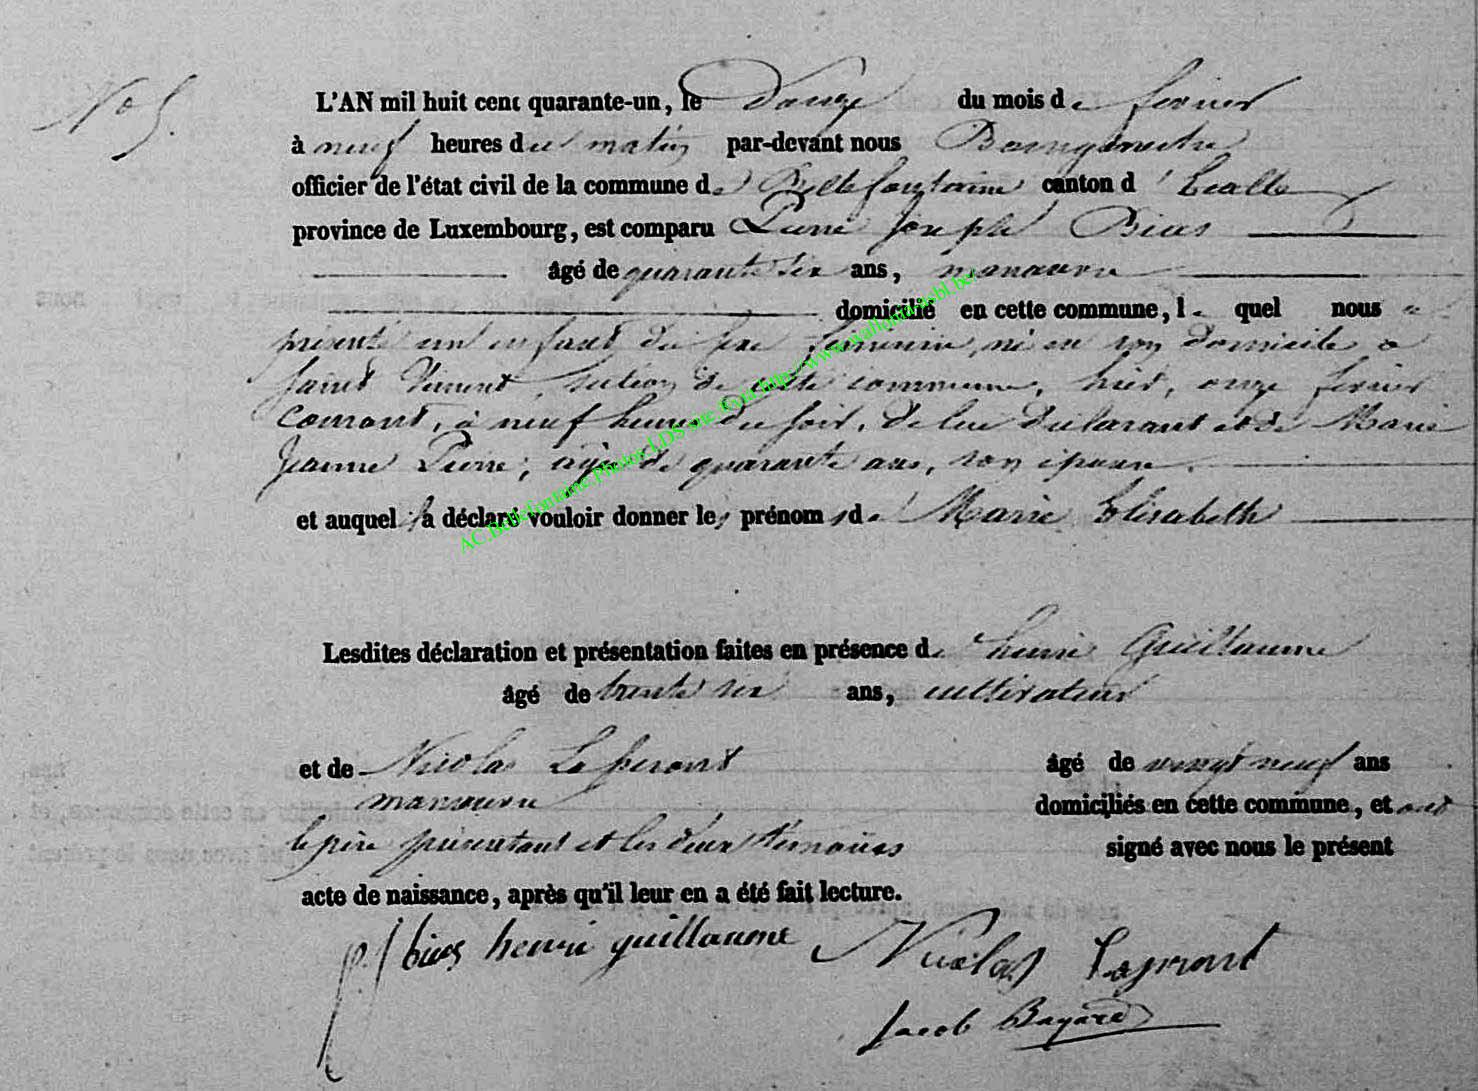 No 5.
L'AN mil huit cent quarante-un, le Douze du mois de fevrier
à neuf heures du matin par-devant nous Bourgmestre
officier de l'état civil de la commune de Bellefontaine canton d'Etalle
province de Luxembourg, est comparu Pierre Joseph Bius
âgé de quarante six ans, manœuvre
domicilié en cette commune, lequel nous a
présenté un enfant du sexe féminin, né en son domicile a
Saint Vincent, section de cette commune, hier, onze fevrier
courant, à neuf heures du soir, de lui déclarant et de Marie
Jeanne Pierre, agée de quarante ans, son épouse.
et auquel il a déclaré vouloir donner les prénoms de Marie Elisabeth
Lesdites déclaration et présentation faites en présence de henri Guillaume
âgé de trente six ans, cultivateur
et de Nicolas Lespront âgé de vingt neuf ans
manœuvre domiciliés en cette commune, et ont
le père présentant et les deux témoins signé avec nous le présent
acte de naissance, après qu'il leur en a été fait lecture.
p j bius henri guillaume Nicolas Lespront
Jacob Bayard
AC.Bellefontaine.Photos.LDS site Exin http://www.wallonia-asbl.be/